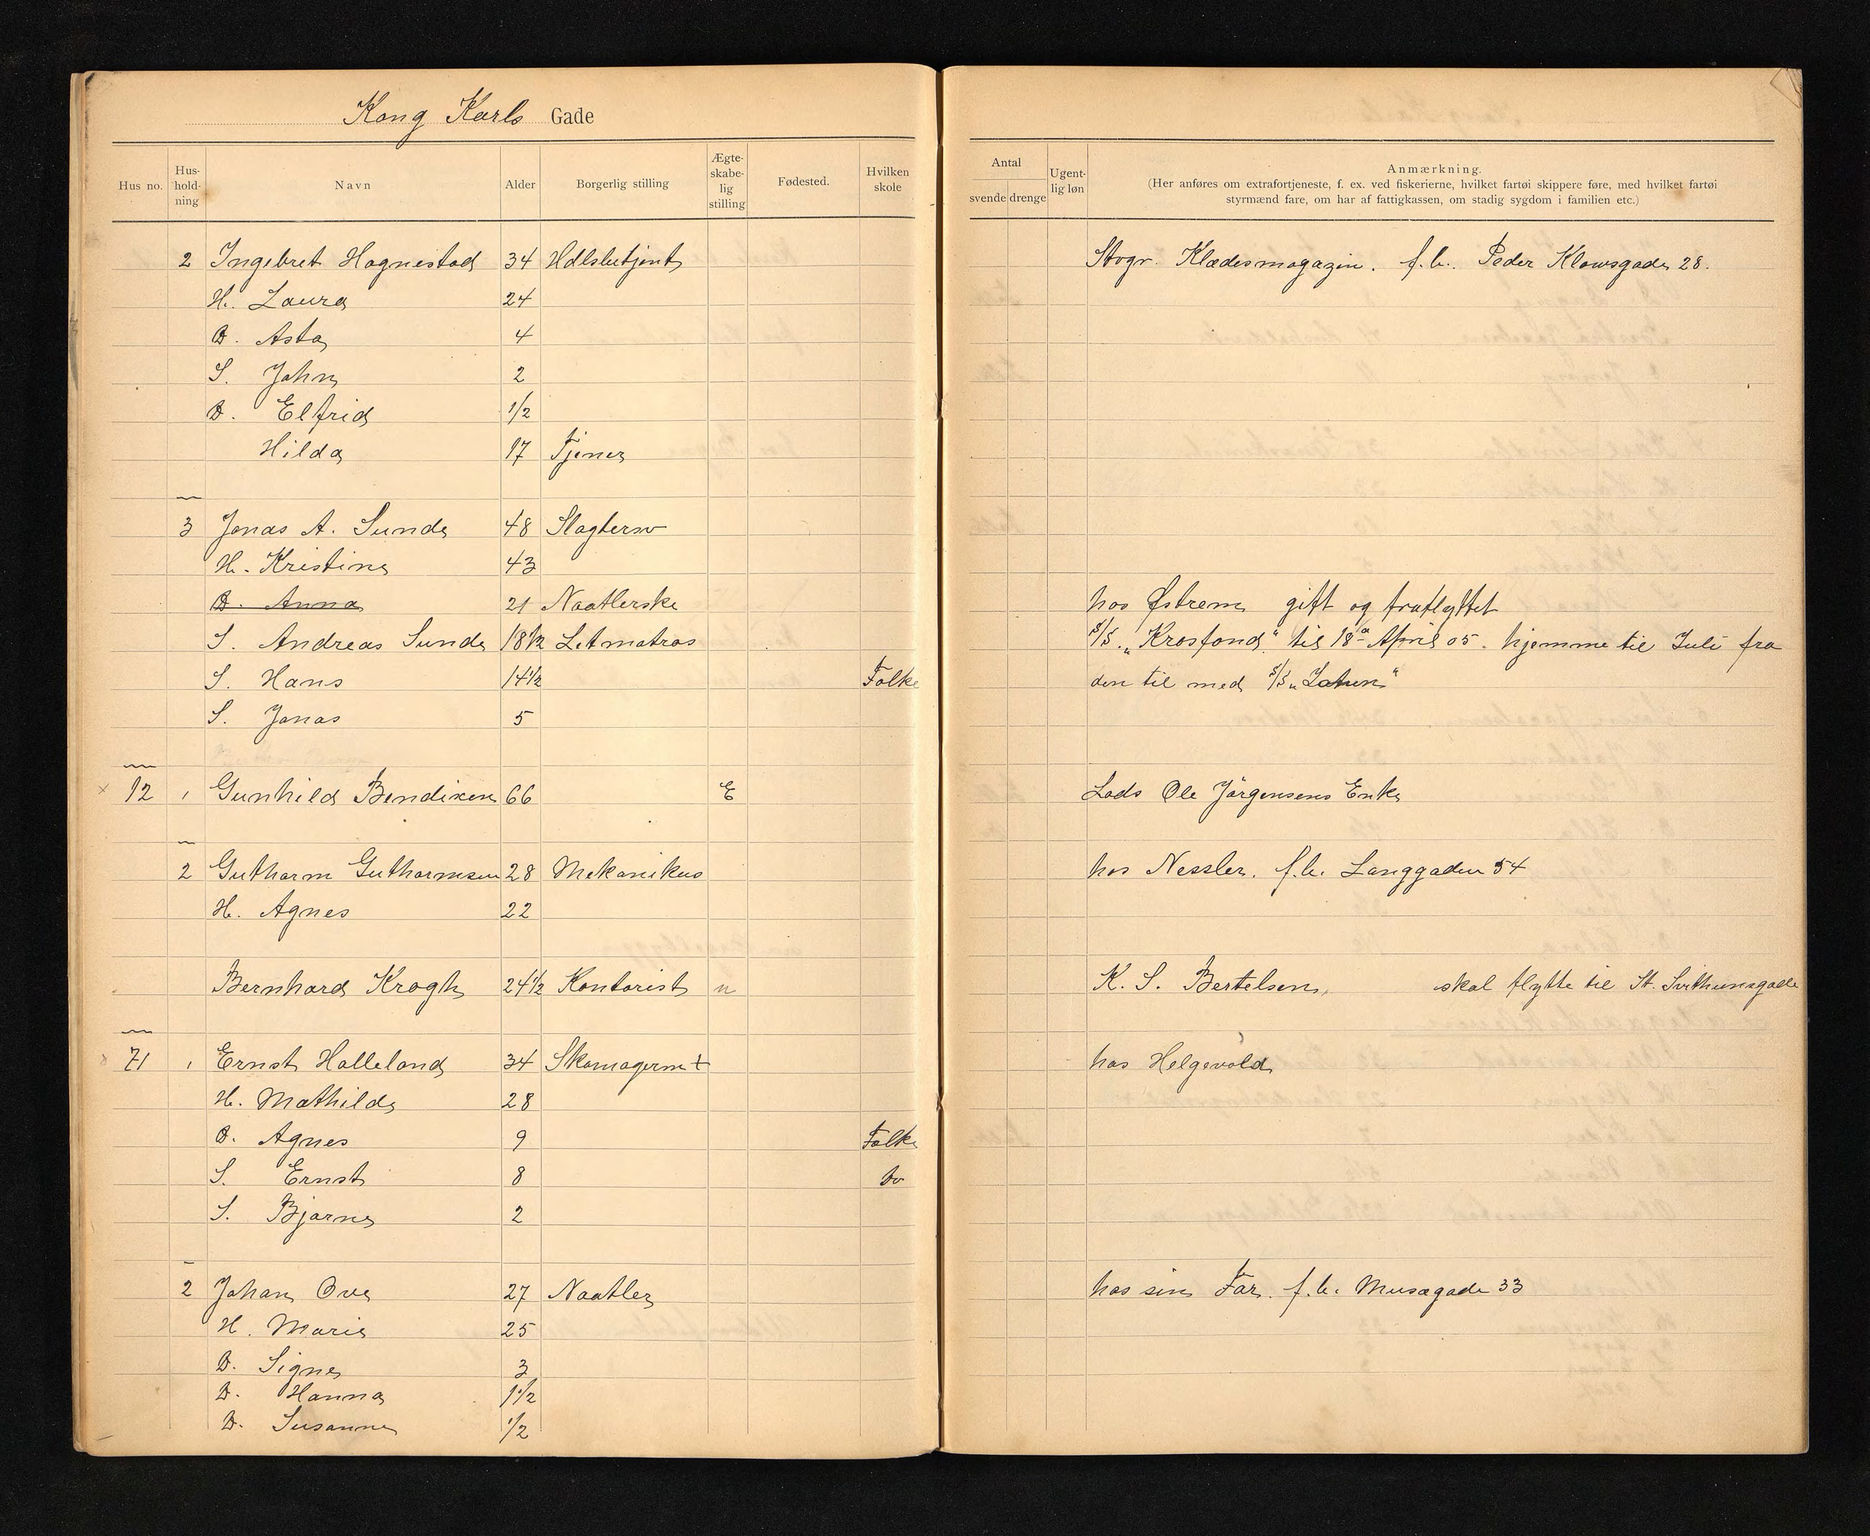 Kong Karls Gade
Hus no. Hus-hold-ning Navn Alder Borgerlig stilling Ægte-skabe-lig stilling Fødested. Hvilken skole
Antal svende drenge Ugent-lig løn Anmærkning.
(Her anføres om extrafortjeneste, f. ex. ved fiskerierne, hvilket fartøi skippere føre, med hvilket fartøi
styrmænd fare, om har af fattigkassen, om stadig sygdom i familien etc.)
2 Ingebret Hognestad 34 Hdlsbetjent Stvgr. Klædesmagazin. f.b. Peder Klowsgade 28.
H. Laura 24
D. Asta 4
S. John 2
D. Elfrid 1/2
Hilda 17 Tjener
3 Jonas A. Sunde 48 Slagtersv
H. Kristine 43
D. Anna 21 Naatlerske hos Østrem gift og fraflyttet
S. Andreas Sunde 18½ Letmatros S/S. "Krosfond" til 18de April 05. hjemme til Juli fra
S. Hans 14½ Folke den til med S/S
S. Jonas 5
× 12 1 Gunhild Bendixen 66 E Lods Ole Jörgensens Enke
2 Guthorm Guthormsen 28 Mekanikus hos Nessler. f.b. Langgaden 54
H. Agnes 22
Bernhard Krogh 24½ Kontorist u K. S. Bertelsen, skal flytte til St. Svithunsgade
71 1 Ernst Halleland 34 Skomagerm + hos Helgevold
H. Mathilde 28
D. Agnes 9 Folke
S. Ernst 8 do
S. Bjarne 2
2 Johan Ove 27 Naatler hos sin Far. f.b. Musægade 33
H. Marie 25
D. Signe 3
D. Hanna 1½
D. Susanne 1/2